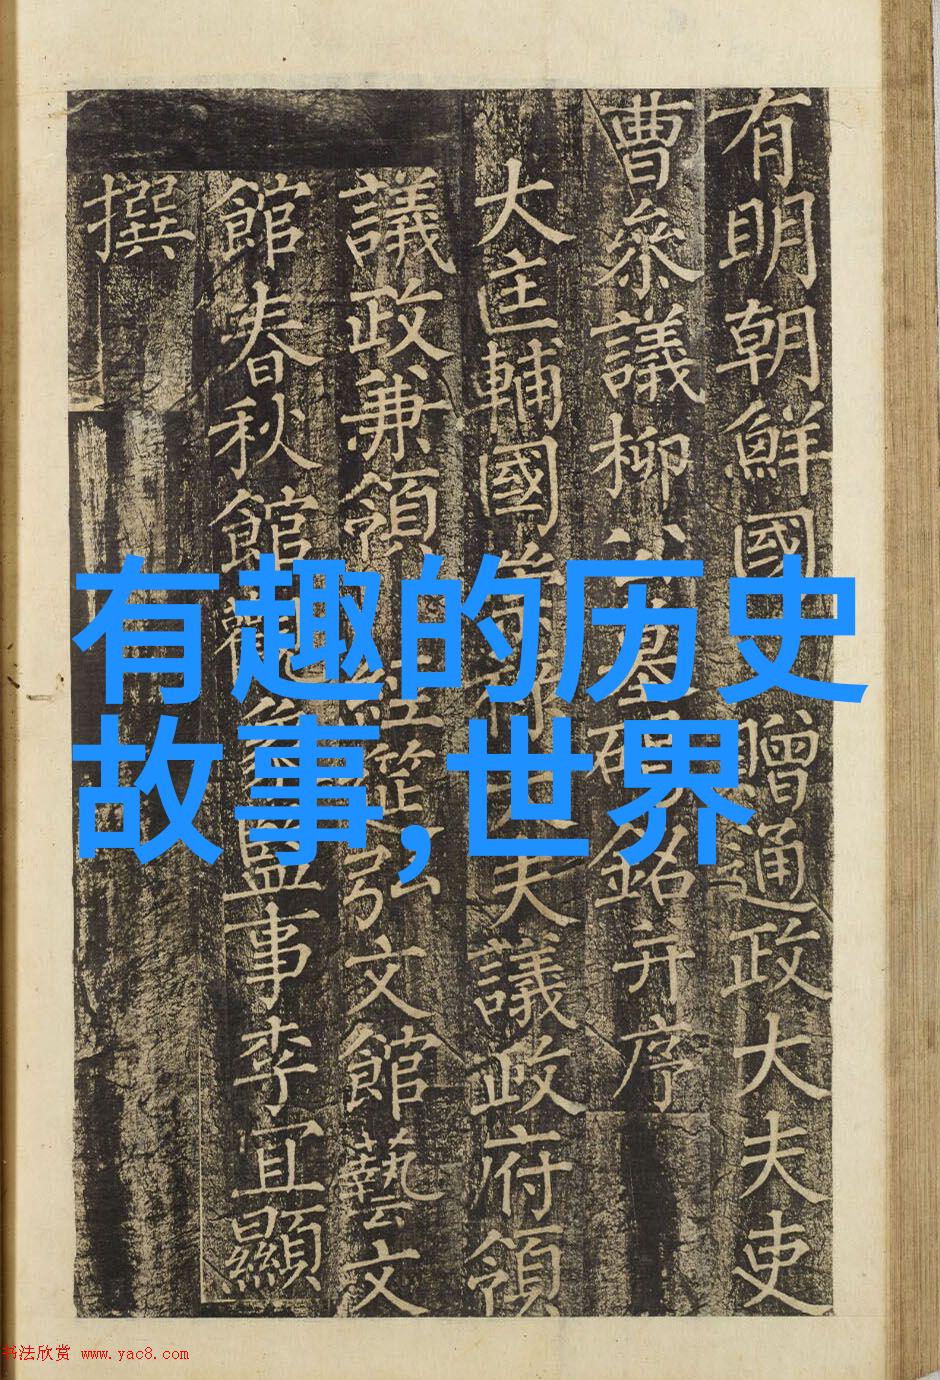 有明朝鮮國贈通政大夫吏
曹叅議柳公墓碣銘并序
大匡輔國崇祿大夫議政府領
議政兼領經筵弘文館藝文
館春秋館觀象監事李宜顯
撰
有趣的历史
故事,世界
书法欣赏 www.yac8.com